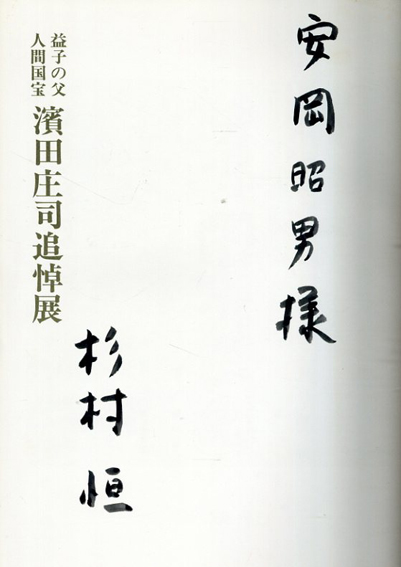 安岡昭男様
益子の父
人間国宝
濱田庄司追悼展
杉村恒